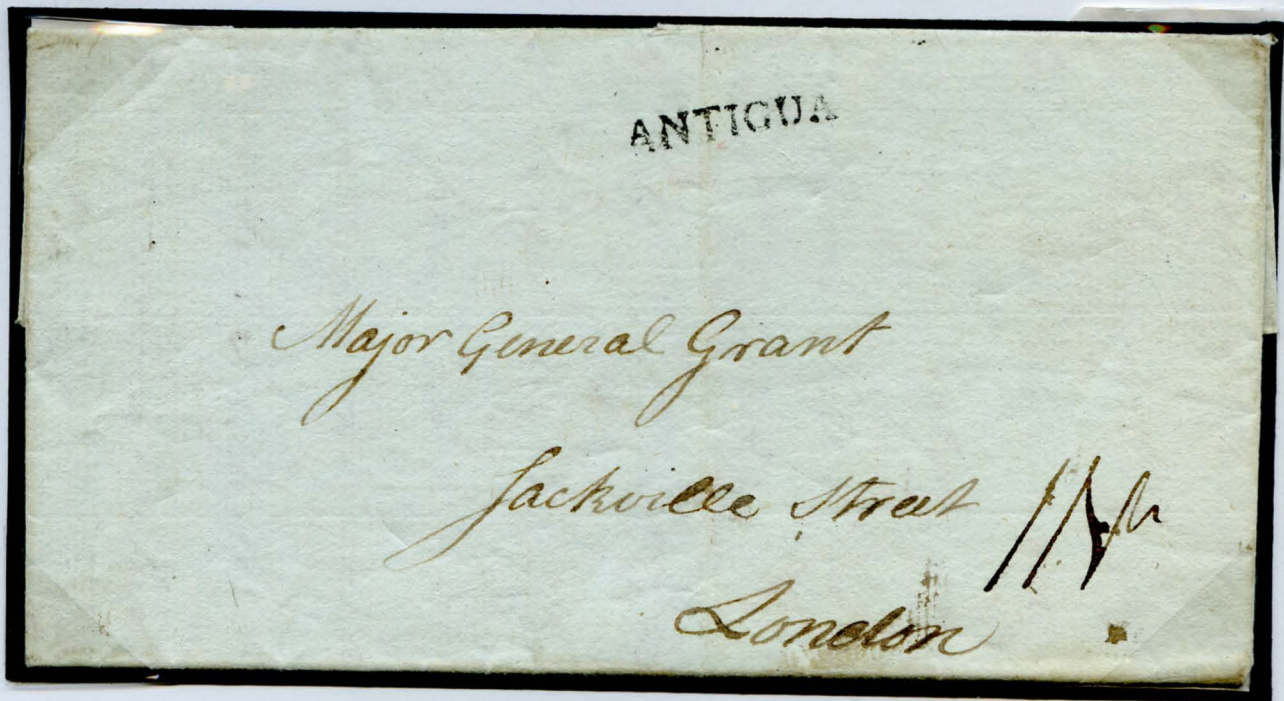 ANTIGUA
Major General Grant
Sackville Street
London